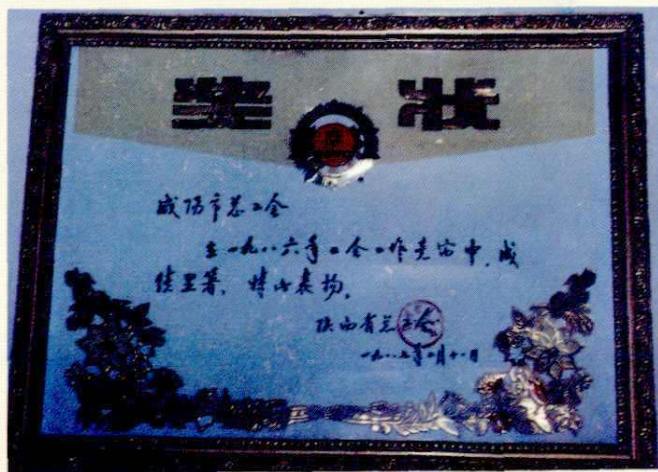 奖状
咸阳市总工会
在一九八六年工会工作竞赛中，成
绩显著，特此表扬。
陕西省总工会
一九八七年二月十一日